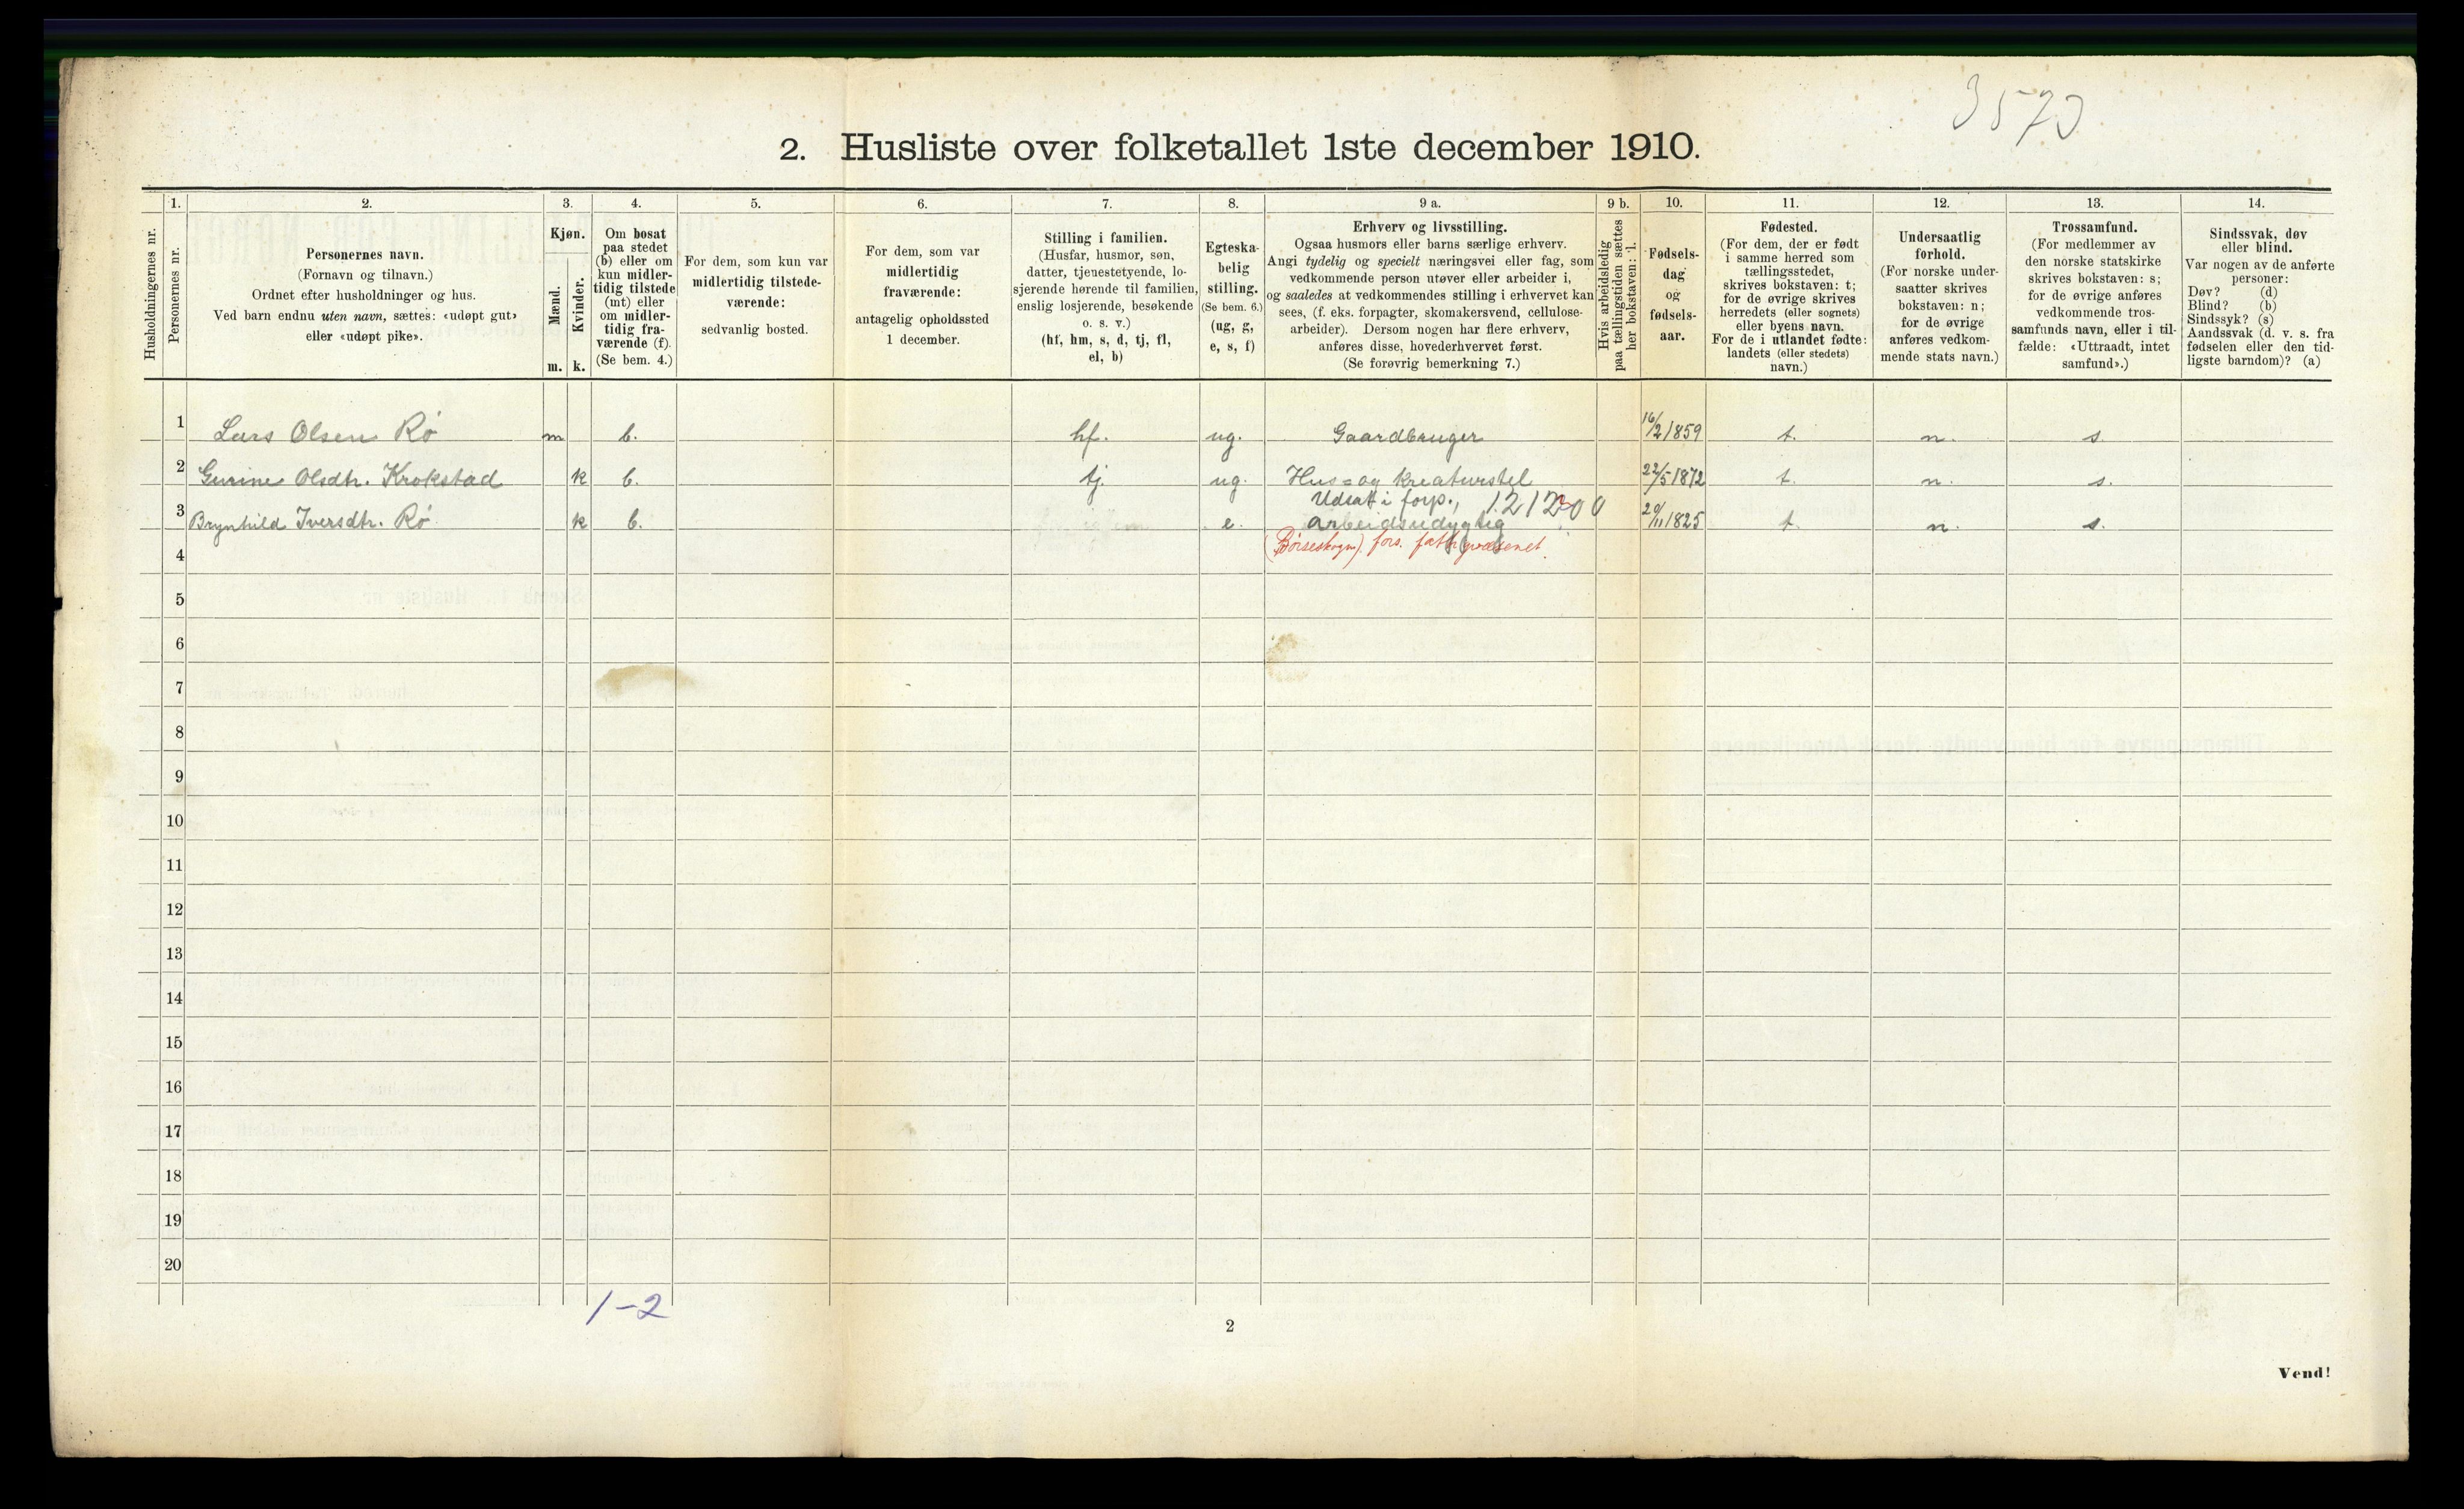 3573
2. Husliste over folketallet 1ste december 1910.
Husholdningernes nr.
1.
Personernes nr.
2.
Personernes navn.
(Fornavn og tilnavn.)
Ordnet efter husholdninger og hus.
Ved barn endnu uten navn, sættes: «udøpt gut»
eller «udøpt pike».
3.
Kjøn.
Mænd.
m.
Kvinder.
k.
4.
Om bosat
paa stedet
(b) eller om
kun midler-
tidig tilstede
(mt) eller
om midler-
tidig fra-
værende (f).
(Se bem. 4.)
5.
For dem, som kun var
midlertidig tilstede-
værende:
sedvanlig bosted.
6.
For dem, som var
midlertidig
fraværende:
antagelig opholdssted
1 december.
7.
Stilling i familien.
(Husfar, husmor, søn,
datter, tjenestetyende, lo-
sjerende hørende til familien,
enslig losjerende, besøkende
o. s. v.)
(hf, hm, s, d, tj, fl,
el, b)
8.
Egteska-
belig
stilling.
(Se bem. 6.)
(ug, g,
e, s, f)
9 a.
Erhverv og livsstilling.
Ogsaa husmors eller barns særlige erhverv.
Angi tydelig og specielt næringsvei eller fag, som
vedkommende person utøver eller arbeider i,
og saaledes at vedkommendes stilling i erhvervet kan
sees, (f. eks. forpagter, skomakersvend, cellulose-
arbeider). Dersom nogen har flere erhverv,
anføres disse, hovederhvervet først.
(Se forøvrig bemerkning 7.)
9 b.
Hvis arbeidsledig
paa tællingstiden sættes
her bokstaven: l.
10.
Fødsels-
dag
og
fødsels-
aar.
11.
Fødested.
(For dem, der er født
i samme herred som
tællingsstedet,
skrives bokstaven: t;
for de øvrige skrives
herredets (eller sognets)
eller byens navn.
For de i utlandet fødte:
landets (eller stedets)
navn.)
12.
Undersaatlig
forhold.
(For norske under-
saatter skrives
bokstaven: n;
for de øvrige
anføres vedkom-
mende stats navn.)
13.
Trossamfund.
(For medlemmer av
den norske statskirke
skrives bokstaven: s;
for de øvrige anføres
vedkommende tros-
samfunds navn, eller i til-
fælde: «Uttraadt, intet
samfund».)
14.
Sindssvak, døv
eller blind.
Var nogen av de anførte
personer:
Døv? (d)
Blind? (b)
Sindssyk? (s)
Aandssvak (d. v. s. fra
fødselen eller den tid-
ligste barndom)? (a)
1 Lars Olsen Rø m b. hf. ug. Gaardbruger 16/2 1859 t. n. s.
2 Gurine Olsdtr. Krokstad k b. tj. ug. Hus= og kreaturstel 22/5 1872 t. n. s.
Udsatt i forp.,
3 Brynhild Iversdtr. Rø k b. e. arbeidsudygtig 20/11 1825 t. n. s.
(Børseskogn). fors. fattigvæsenet.
4
5
6
7
8
9
10
11
12
13
14
15
16
17
18
19
20
1-2
2
Vend!